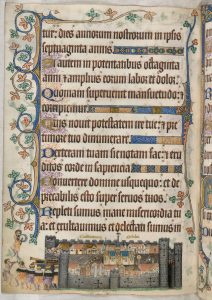 tur: dies annorum nostrorum in ipsis
septuaginta annis
Si autem in potentatibus octoginta
anni: et amplius eorum labor et dolor.
Quoniam superuenit mansuetudo: et
corripiemur
Quis nouit potestatem ire tue: et pre
timore tuo dinumerare
Dexteram tuam sic notam fac: et eru
ditos corde in sapiencia
Conuertere domine usquequo: et de
precabilis esto super seruos tuos.
Repleti sumus mane misericordia tu
a: et exultauimus et delectati sumus in